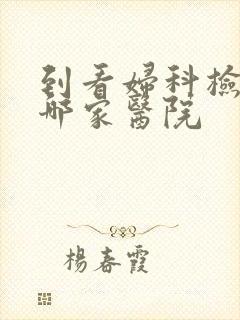 到看婦科檢
哪家醫院
楊春霞